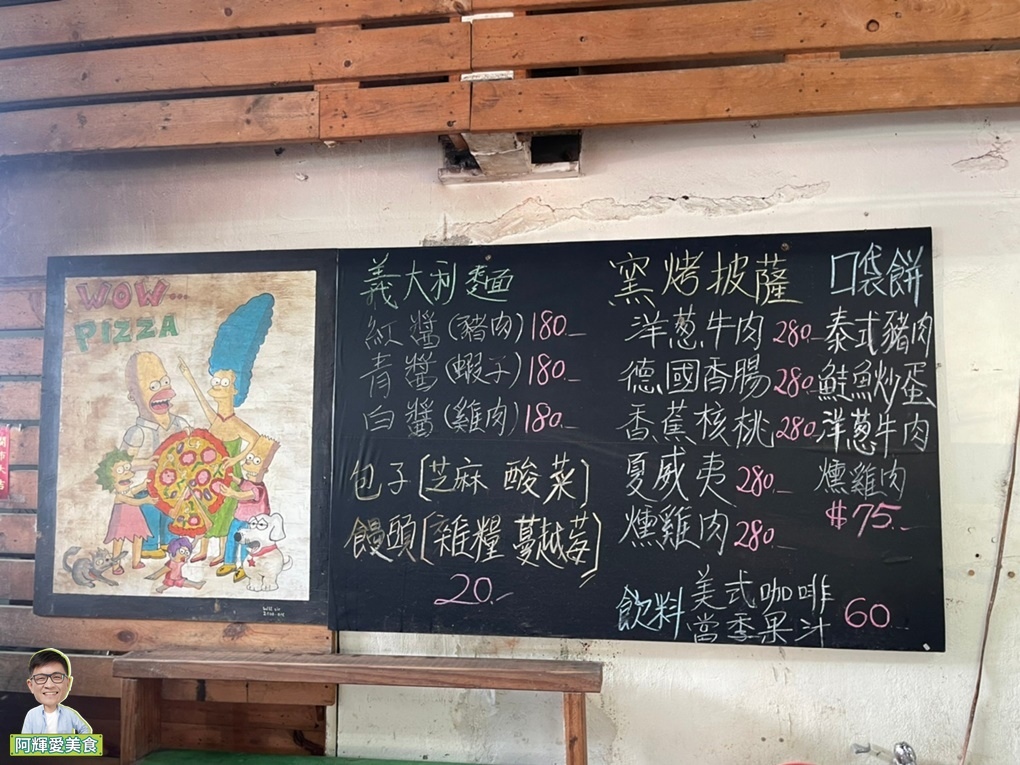 WOW...
PIZZA
義大利麵
紅醬(豬肉)180.
青醬(蝦子)180.
白醬(雞肉)180.
包子[芝麻 酸菜]
饅頭[雜糧 蔓越莓]
20.
窯烤披薩
洋蔥牛肉 280.
德國香腸 280.
香蕉核桃 280.
夏威夷 280.
燻雞肉 280.
口袋餅
泰式豬肉
鮭魚炒蛋
洋蔥牛肉
燻雞肉
$75.
飲料 美式咖啡
當季果汁 60
阿輝愛美食